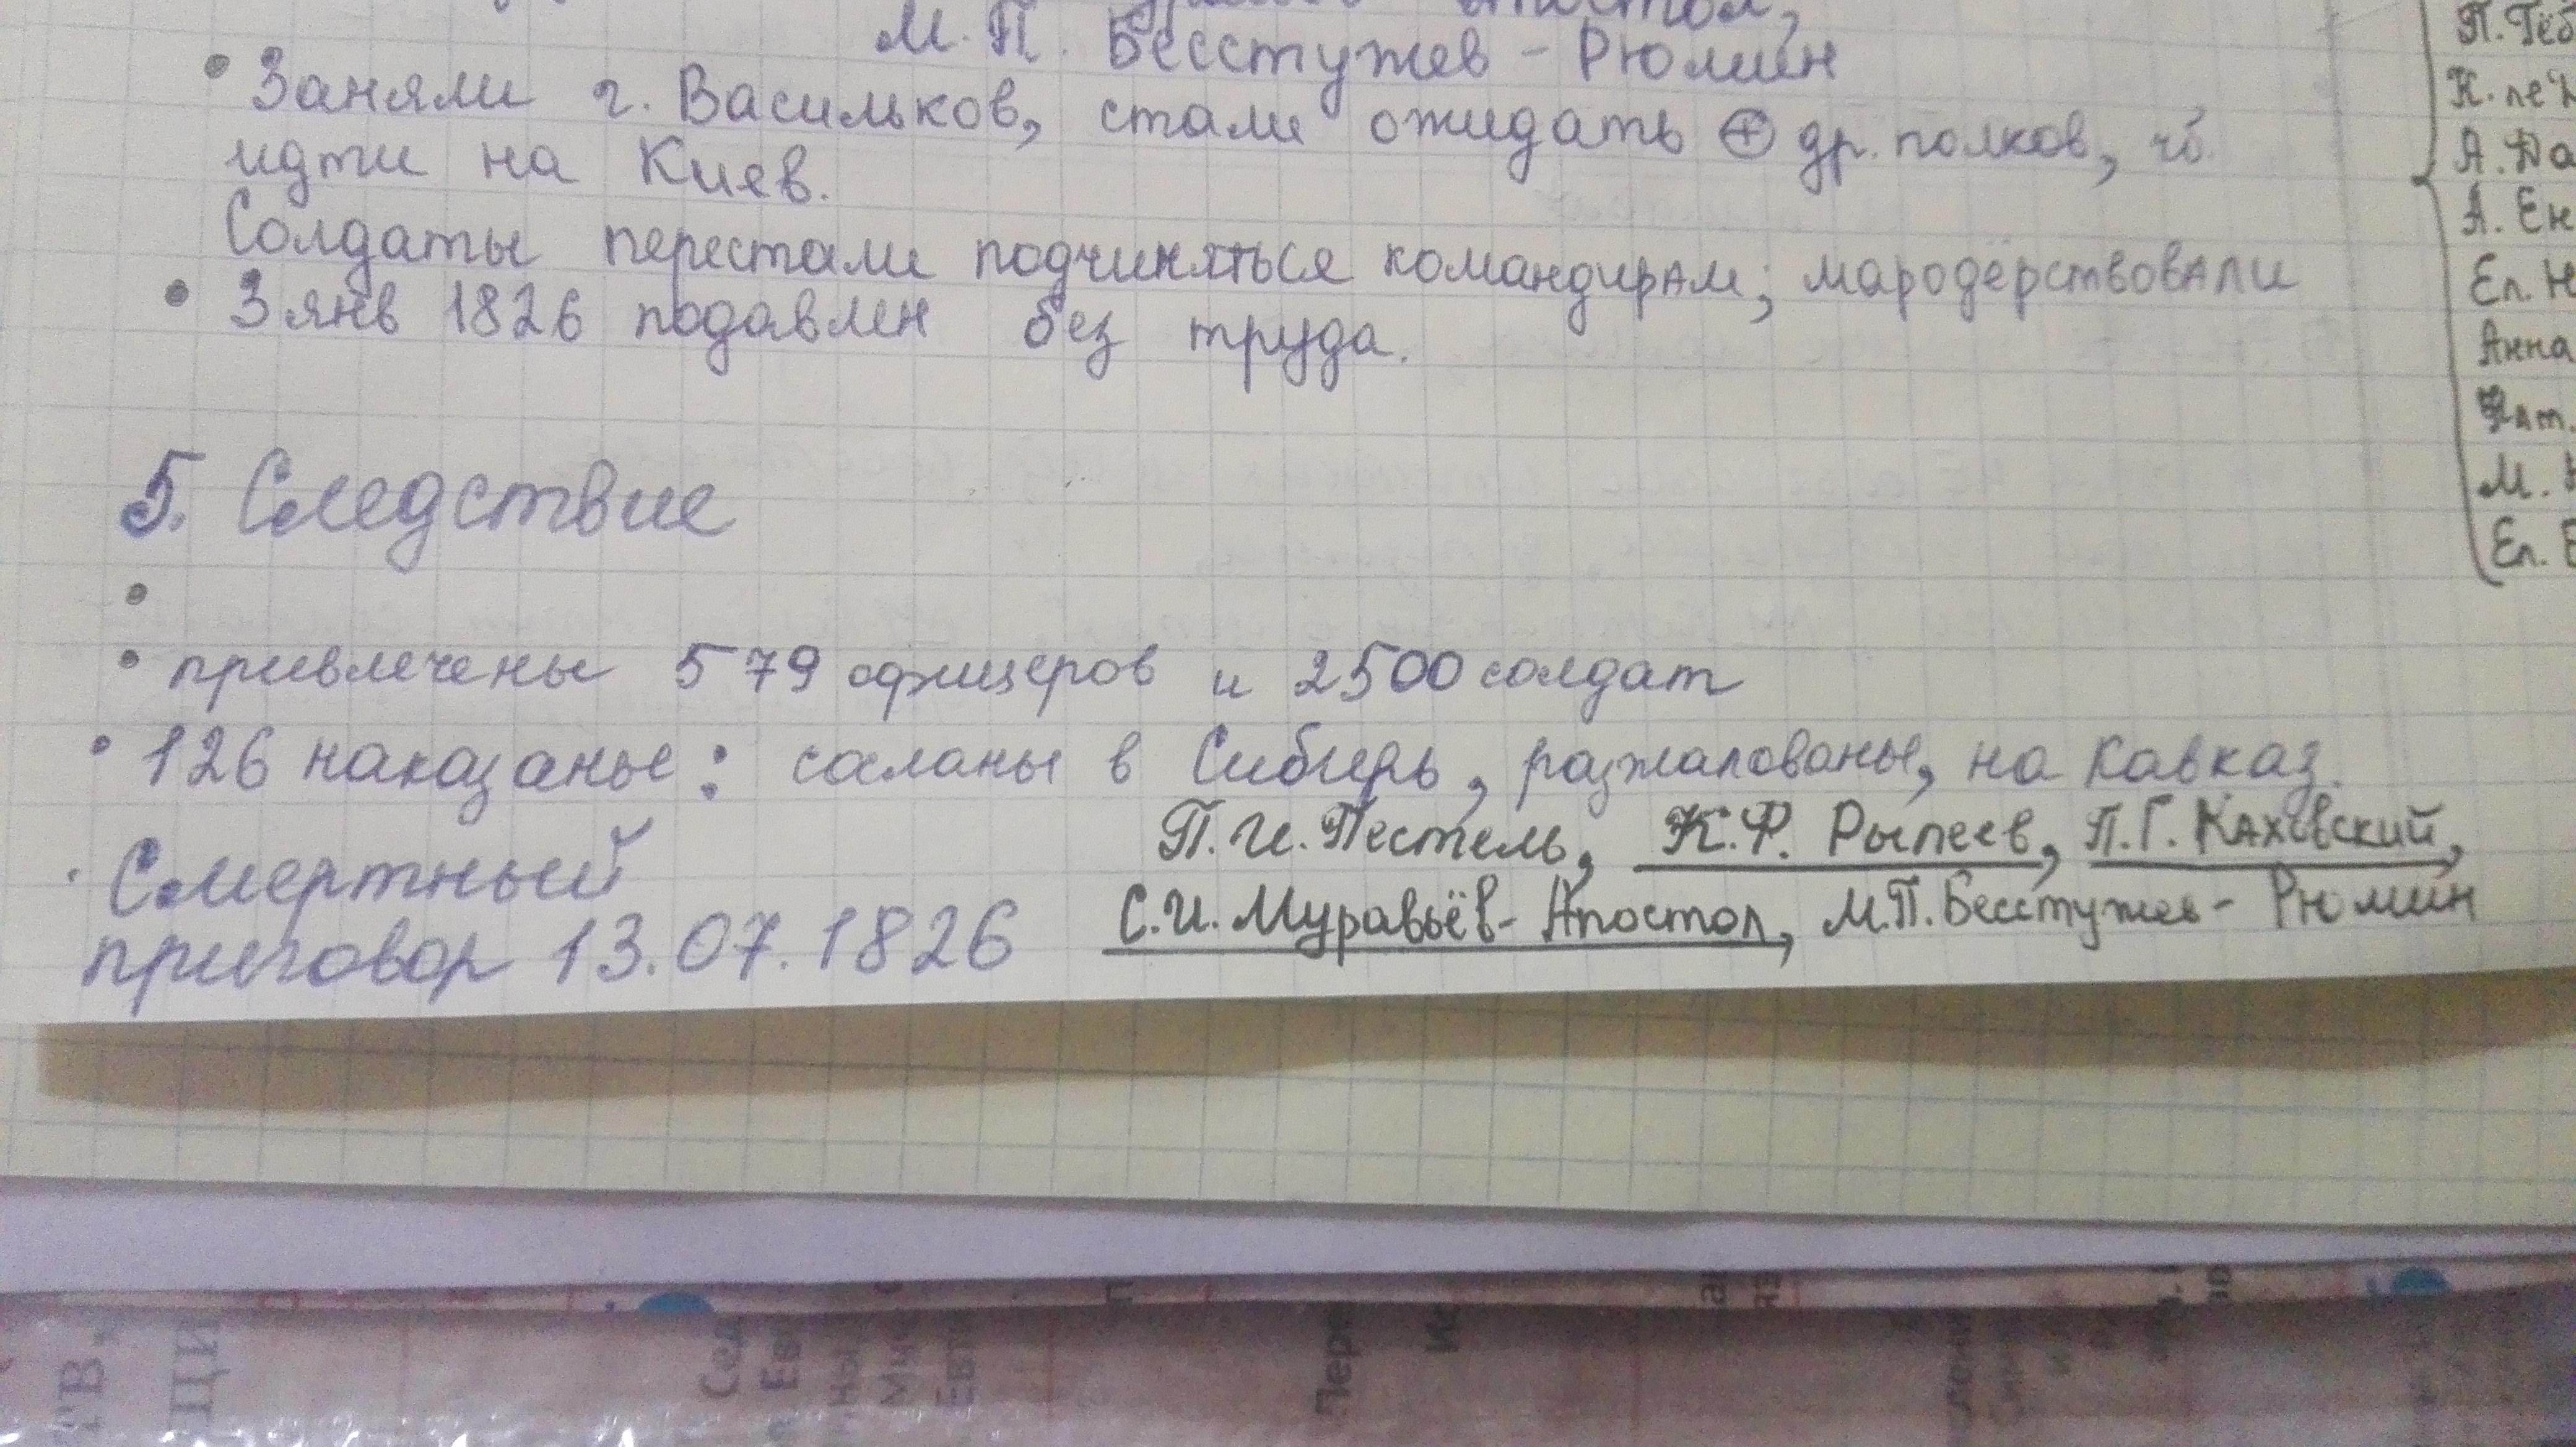 М.П. Бесстужев-Рюмин
• Заняли г. Васильков, стали ожидать ⊕ др. полков, чб
идти на Киев.
Солдаты перестали подчиняться командирам; мародёрствовали
• 3 янв 1826 подавлен без труда.
5. Следствие
•
• привлечены 579 офицеров и 2500 солдат
• 126 наказаны: сосланы в Сибирь, разжалованы, на Кавказ.
· Смертный
приговор 13.07.1826
П.И. Пестель, К.Ф. Рылеев, П.Г. Каховский,
С.И. Муравьёв-Апостол, М.П. Бесстужев-Рюмин
К. ле
А. Ен
Ел. Н
Анна
М.
Ел.